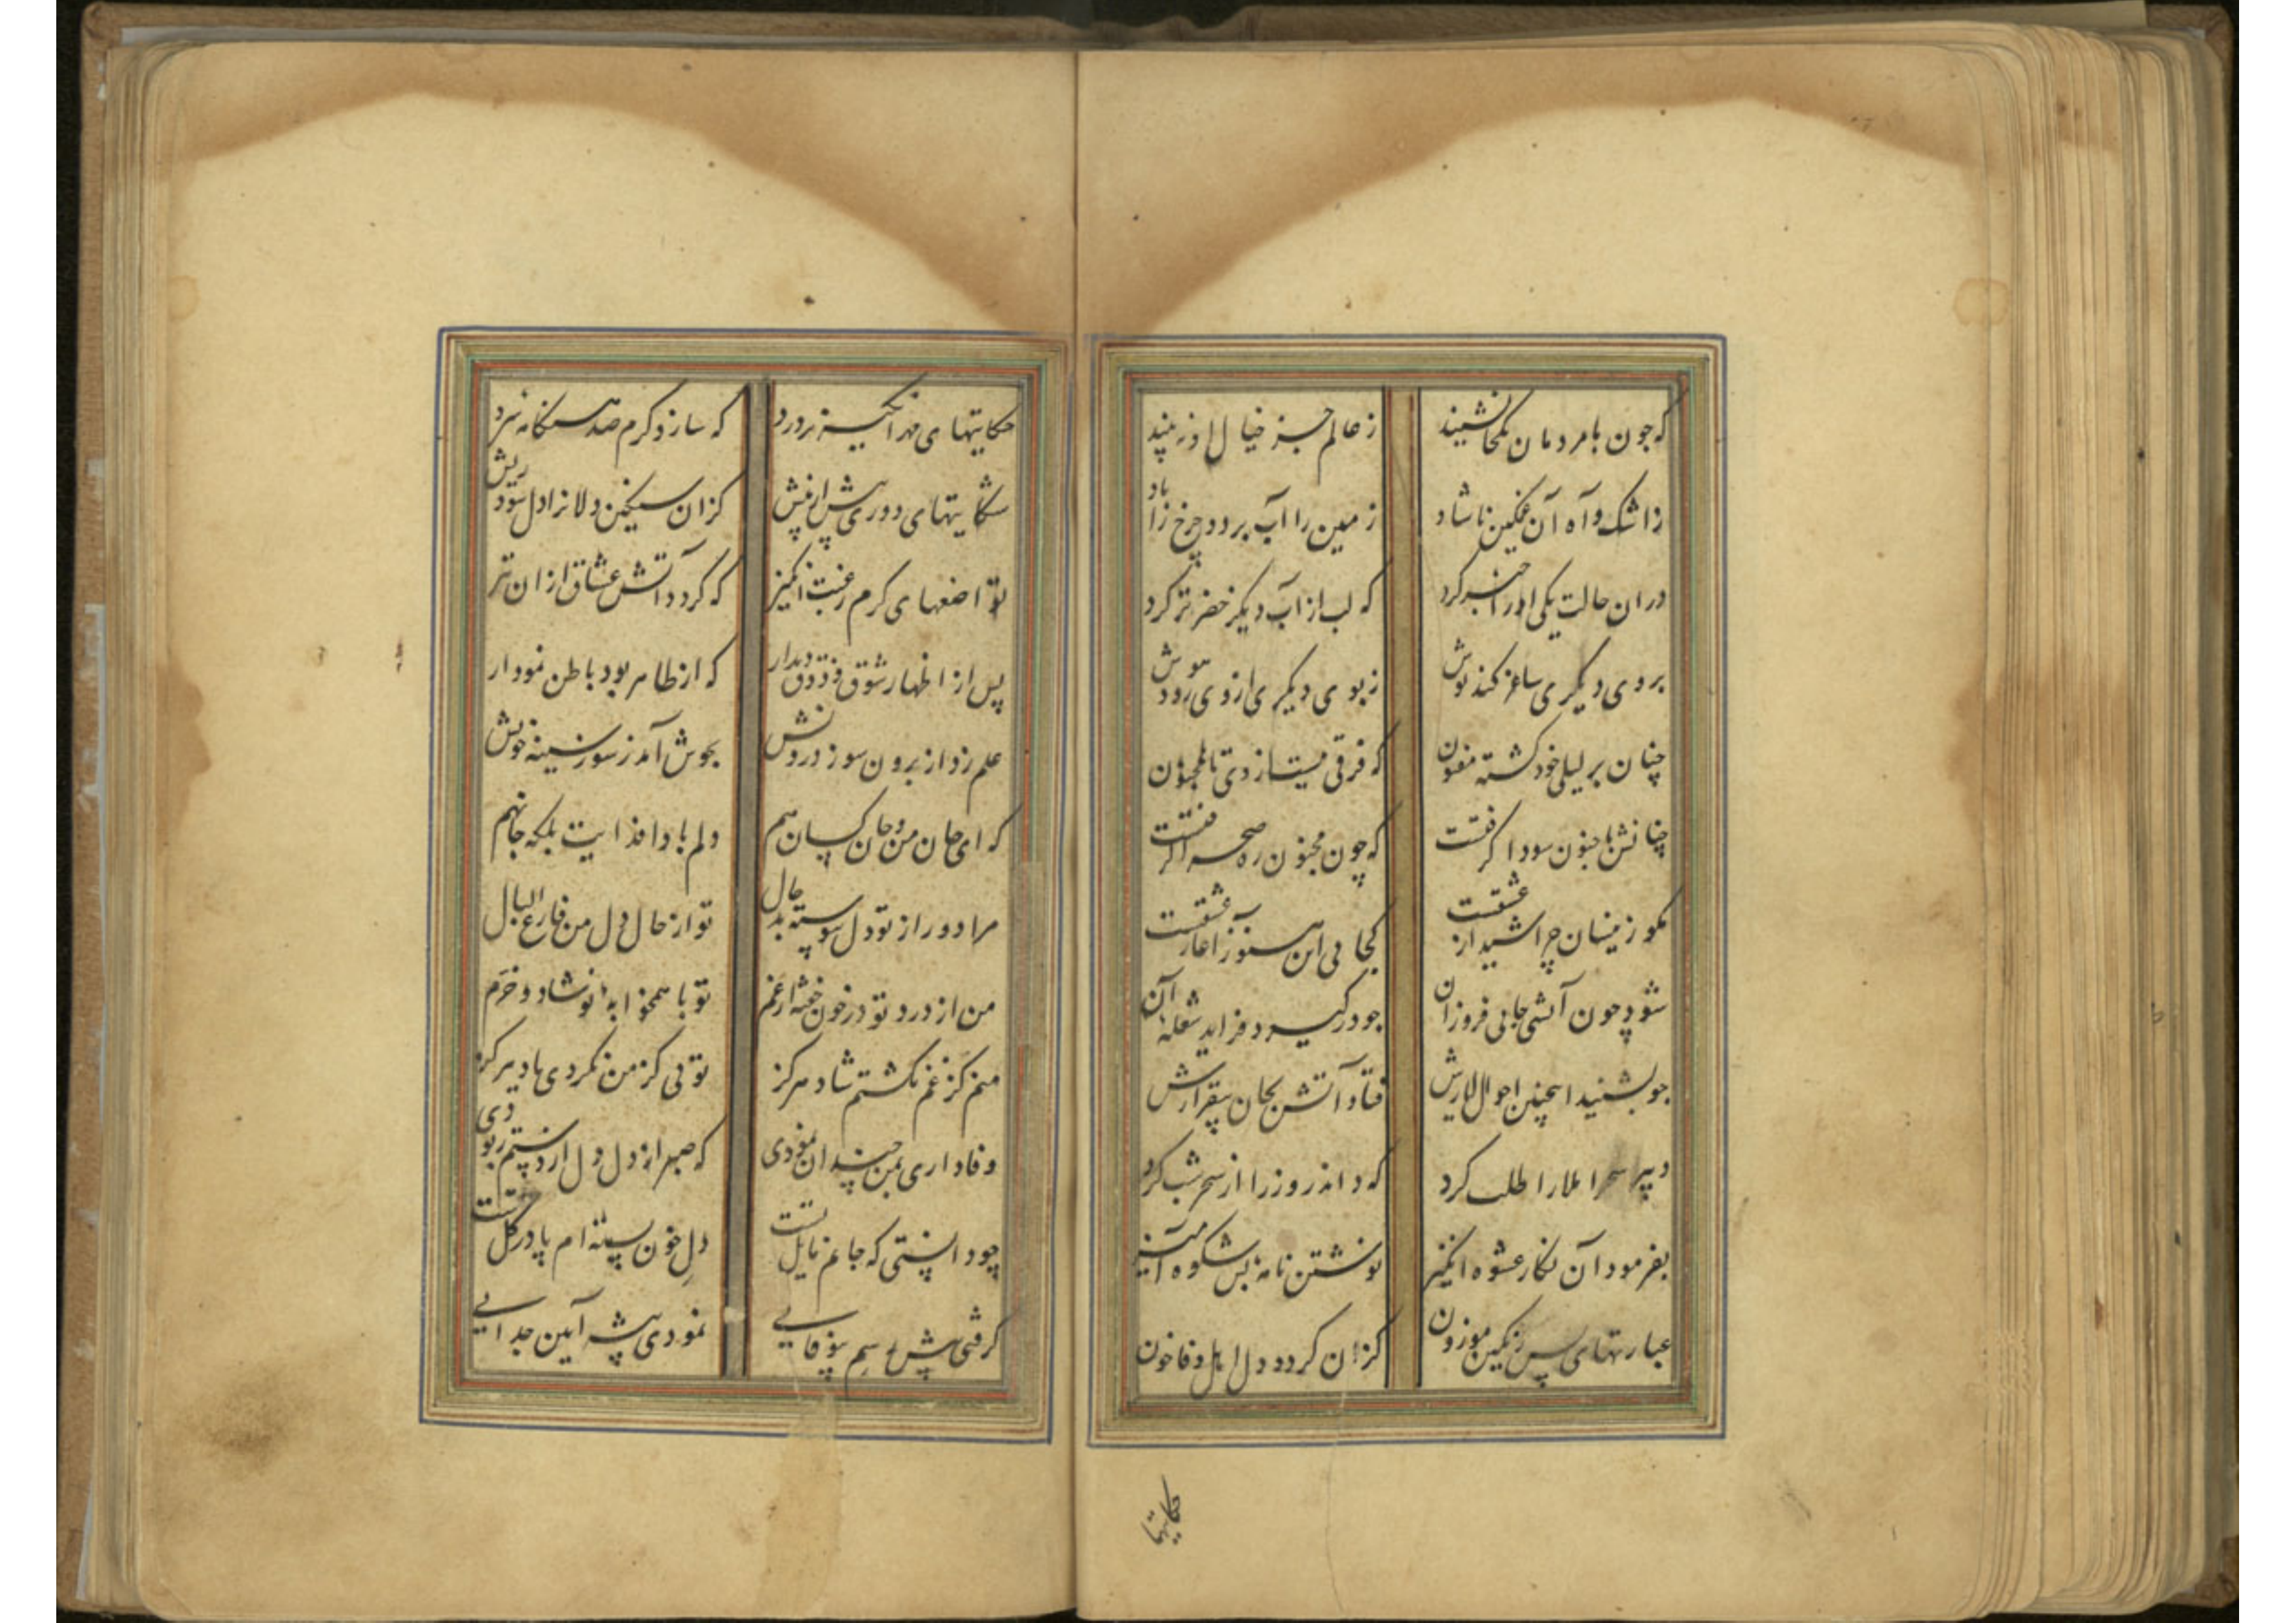 که چون با مردمان یکجا نشیند ز عالم جز خیال او نه بیند
ز اشک و آه آن غمگین ناشاد زمین را آب برد و چرخ را باد
در ان حالت یکی او را خبر کرد که لب از آب دیگر خضر تر کرد
بروی دیگری ساغر کند نوش ز بوی دیگری از وی رود هوش
چنان بر لیلی خود گشته مفتون که فرقی نیست از وی تا بمجنون
چنانش با جنون سودا گرفتست که چون مجنون ره صحرا گرفتست
مگو زینسان چرا شیدای عشقست کجایی این هنوز آغاز عشقست
شود چون آتشی جایی فروزان چو در گیرد فزاید شعله آن
چو بشنید اینچنین احوال یارش فتاد آتش بجان بیقرارش
دبیر سحر املا را طلب کرد که داند روز را از سحر شب کرد
بفرمود آن نگار عشوه انگیز نوشتن نامه بس شکوه آمیز
عبارتهای بس رنگین موزون کزان گردد دل اهل وفا خون
حکایتها
حکایتهای مهر آ پرورد که سازد گرم صد هنگامه سرد
شکایتهای دوری بیش از پیش کزان سنگین دلانرا دل شود ریش
تواضعهای گرم رغبت انگیز که گردد آتش عشاق ازان تیز
پس از اظهار شوق و ذوق دیدار که از ظاهر بود باطن نمودار
علم زد از برون سوز درونش بجوش آمد ز سوز سینه خونش
که ای جان من و جان کسان هم دلم بادا فدایت بلکه جانهم
مرا دور از تو دل پیوسته بد حال تو از حال دل من فارغ البال
من از درد تو در خون خفته از غم تو با همخوابه نو شاد و خرم
منم کز غم نگشتم شاد هرگز تویی کز من نکردی یاد هرگز
وفاداری بمن چندان نمودی که صبر از دل دل از دستم ربودی
چو دانستی که جانم مایل تست دل خون بسته ام پا در گل تست
گرفتی پیش رسم بیوفایی نمودی پیشه آیین جدایی